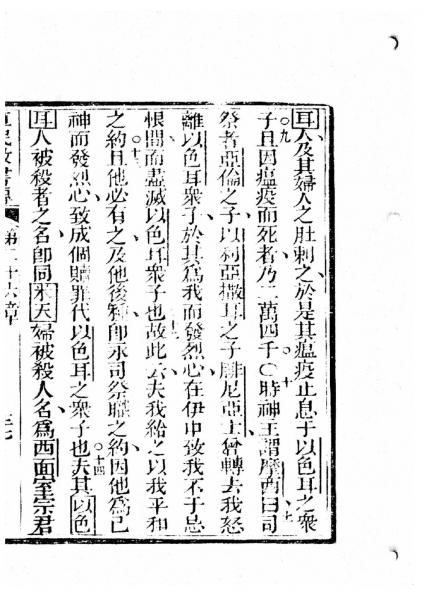 耳人及其婦人之肚刺之於是其瘟疫止息于以色耳之衆
子○九且因瘟疫而死者乃二萬四千○十○時神主謂摩西曰○十一司
祭者亞倫之子以利亞撒耳之子腓尼亞士曾轉去我怒
離以色耳衆子於其為我而發烈心在伊中致我不于忌
恨間而盡滅以色耳衆子也○十二故此云夫我給之以我平和
之約○十三且他必有之及他後種即永司祭職之約因他為己
神而發烈心致成個贖罪代以色耳之衆子也○十四夫其以色
耳人被殺者之名即同米天婦被殺人名為西面室宗君
第二十六章